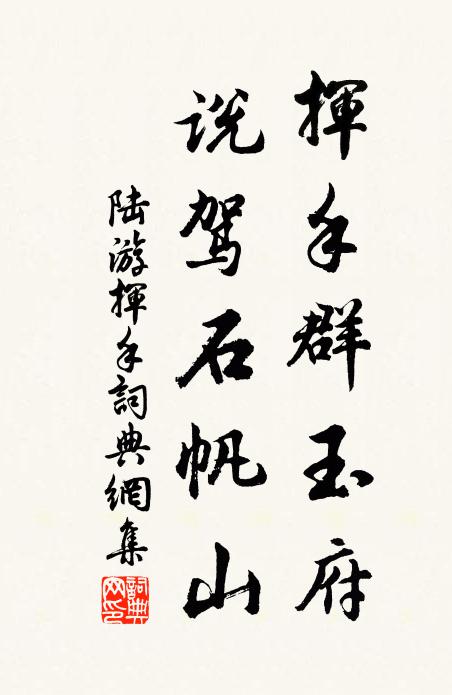 揮手群玉府
说驾石帆山
陆游揮手詞典網集
詞典网印